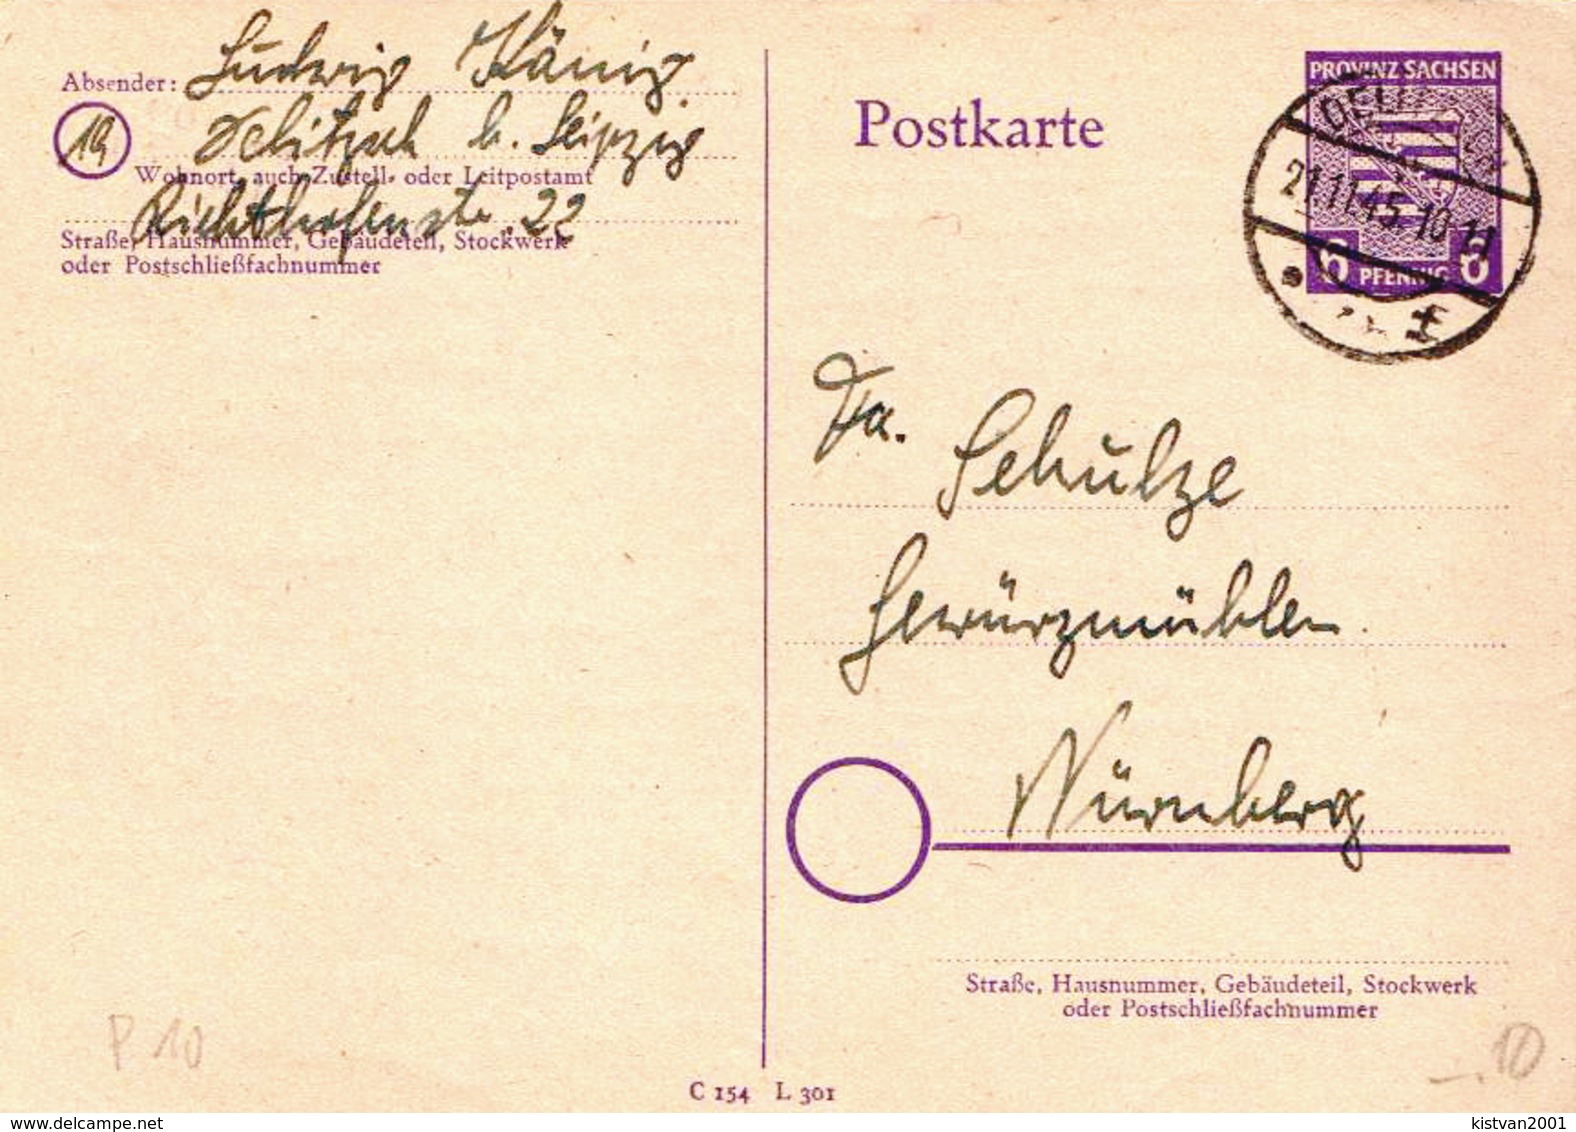 Absender: Ludwig König
19 Delitzsch b. Leipzig
Wohnort, auch Zustell- oder Leitpostamt
Richthofenstr. 22
Straße, Hausnummer, Gebäudeteil, Stockwerk
oder Postschließfachnummer
Postkarte
PROVINZ SACHSEN
6 PFENNIG 6
21.11.45.10-11
Fa.
Schulze
Gewürzmühlen
Nürnberg
Straße, Hausnummer, Gebäudeteil, Stockwerk
oder Postschließfachnummer
P 10
-.10
C 154 L 301
delcampe.net
kistvan2001